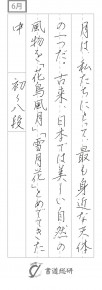 6月
月は、私たちにとって、最も身近な天体
の一つだ。古来、日本では美しい自然の
風物を「花鳥風月」「雪月花」とめでてきた
中　初〜八段
書道総研